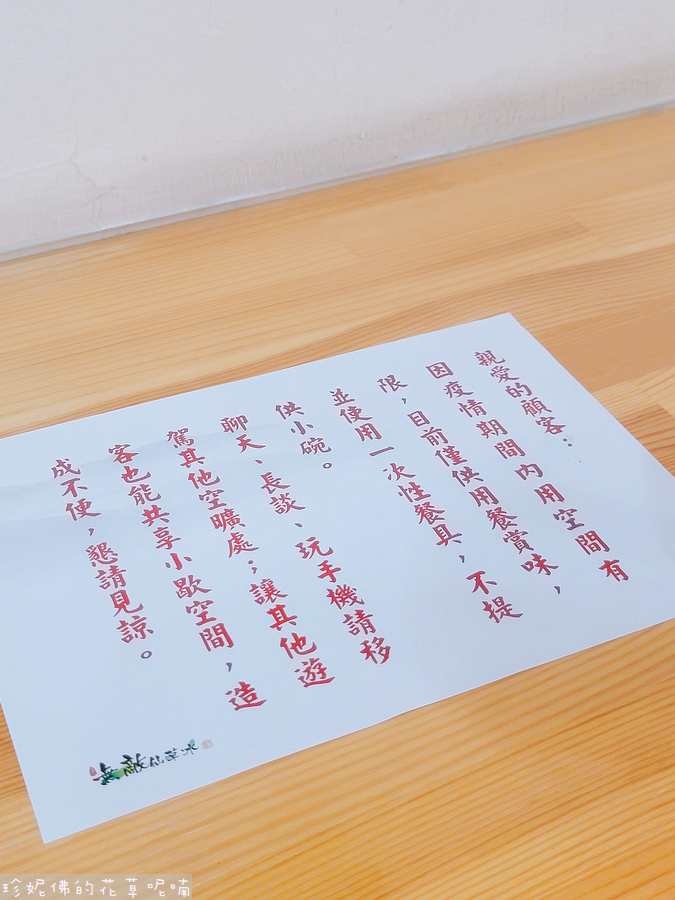 親愛的顧客:
因疫情期間內用空間有
限,目前僅供用餐賞味,
並使用一次性餐具,不提
供小碗。
聊天、長談、玩手機請移
駕其他空曠處;讓其他遊
客也能共享小歇空間,造
成不便,懇請見諒。
無敵仙草冰
珍妮佛的花草呢喃